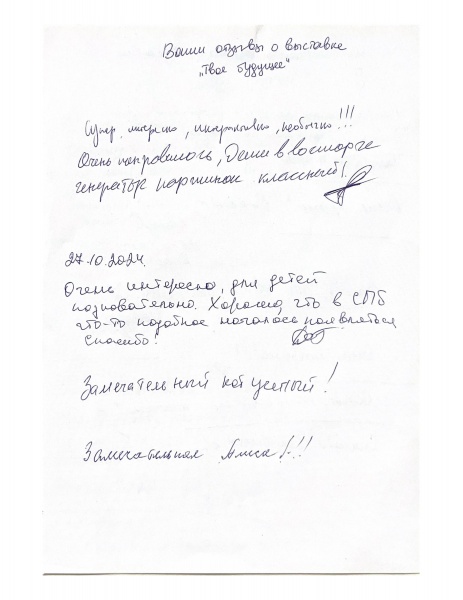 Ваши отзывы о выставке
"Твое будущее"
Супер, интересно, интерактивно, необычно!!!
Очень понравилось, Дети в восторге
генератор картинок классный!
27.10.2024.
Очень интересно, для детей
познавательно. Хорошо, что в СПб
что-то подобное началось появляться
Спасибо!
Замечательный кот ученый!
Замечательная Алиса!!!